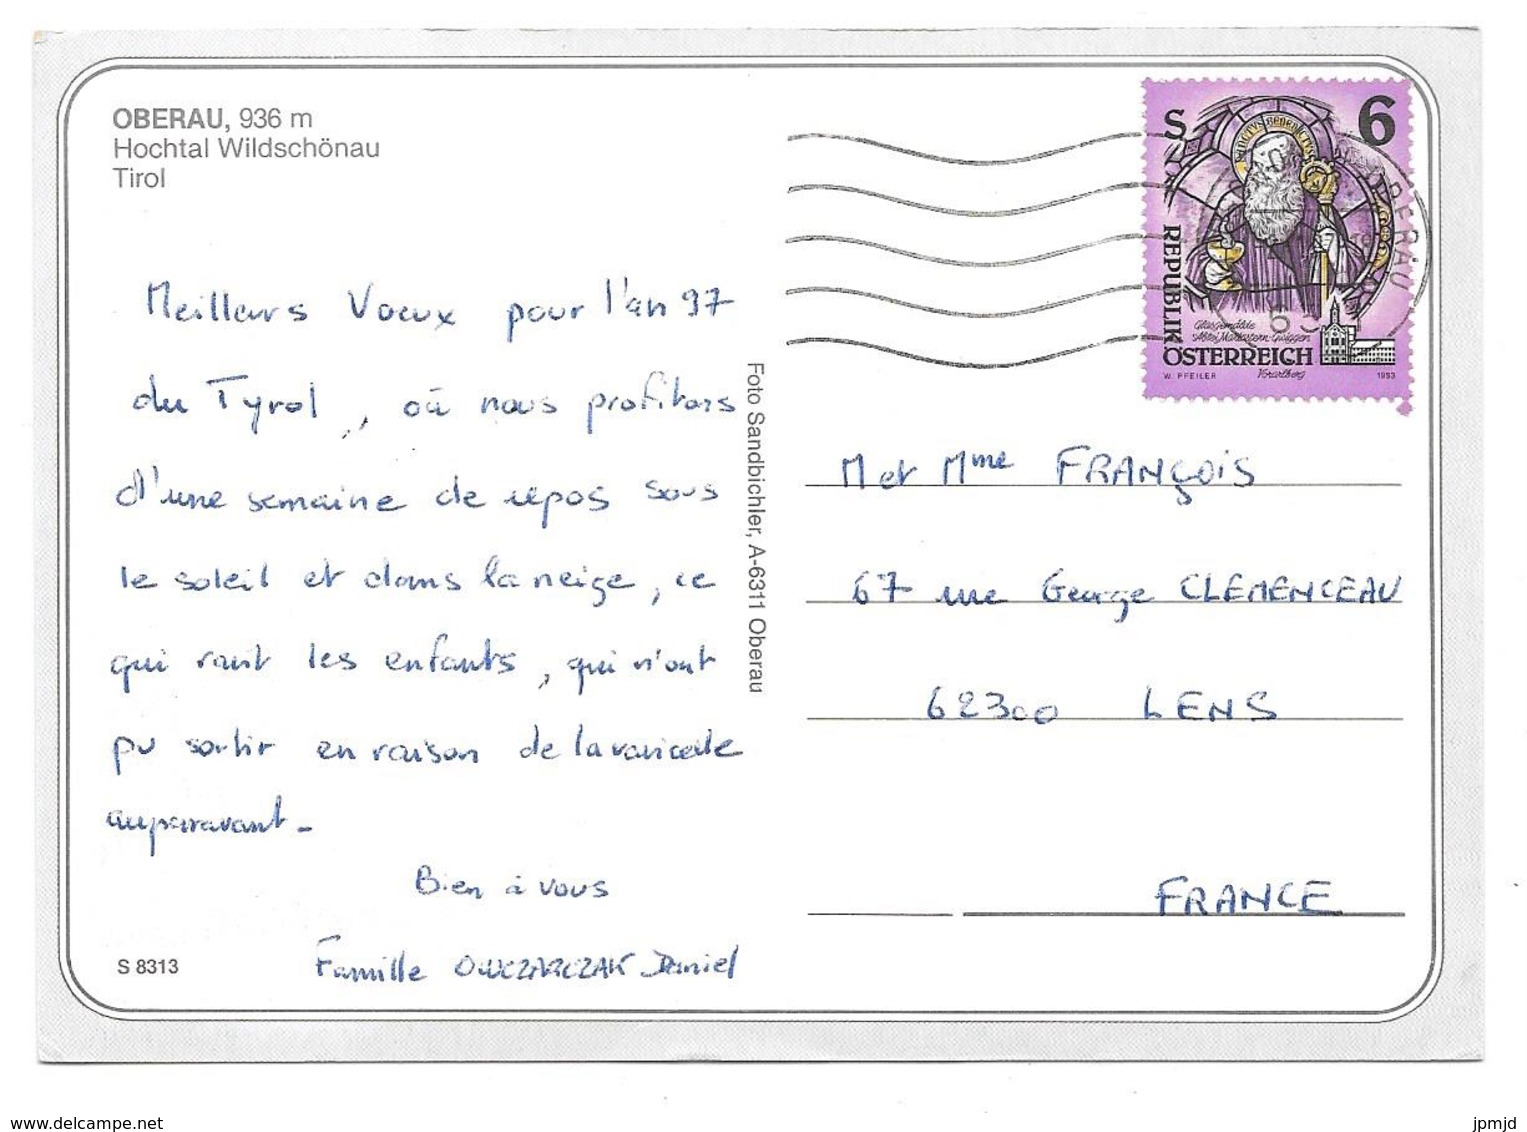 OBERAU, 936 m
Hochtal Wildschönau
Tirol
Meilleurs Voeux pour l'an 97
du Tyrol, où nous profitons
d'une semaine de repos sous
le soleil et dans la neige, ce
qui ravit les enfants, qui n'ont
pu sortir en raison de la varicelle
auparavant.
Bien à vous
Famille OWCZARCZAK Daniel
S 8313
Foto Sandbichler, A-6311 Oberau
S 6
SANCTVS BENEDICTVS
REPUBLIK
ÖSTERREICH
Glasgemälde
Abtei Mariastern-Gwiggen
Vorarlberg
W. PFEILER 1993
OBERAU
M et Mme FRANÇOIS
67 rue George CLEMENCEAU
62300 LENS
FRANCE
www.delcampe.net
jpmjd